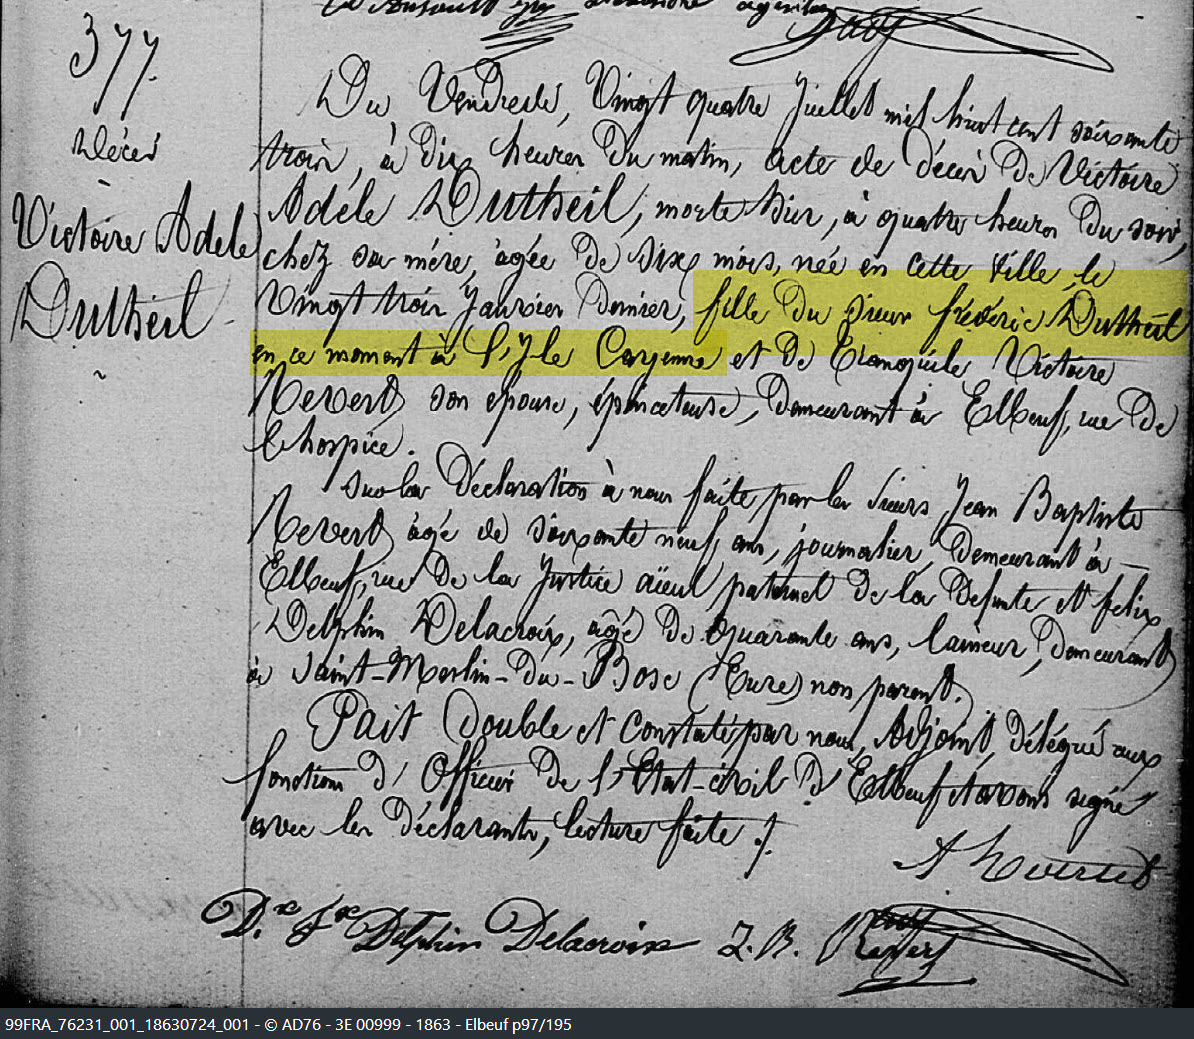 377.
Décès
Victoire Adèle
Dutheil
Du Vendredi, Vingt quatre Juillet mil huit cent soixante
trois, à dix heures du matin, acte de décès de Victoire
Adèle Dutheil, morte hier, à quatre heures du soir,
chez sa mère, agée de six mois, née en cette Ville, le
Vingt trois Janvier dernier, fille du sieur frédéric Dutheil
en ce moment à l'Yle Cayenne et de Tranquile Victoire
Revert son épouse, épinceteuse, demeurant à Elbeuf, rue de
l'hospice.
Sur la déclaration à nous faite par les sieurs Jean Baptiste
Revert agé de soixante neuf ans, journalier, demeurant à —
Elbeuf, rue de la Justice aïeul paternel de la défunte et felix
Delphin Delacroix, agé de quarante ans, laineur, demeurant
à Saint-Meslin-du-Bosc (Eure) non parent.
Fait double et constaté par nous, Adjoint, délégué aux
fonctions d'Officier de l'Etat-civil d'Elbeuf et avons signé
avec les déclarants, lecture faite ./.
D.x Fx Delphin Delacroix J. B. Revert
99FRA_76231_001_18630724_001 - © AD76 - 3E 00999 - 1863 - Elbeuf p97/195